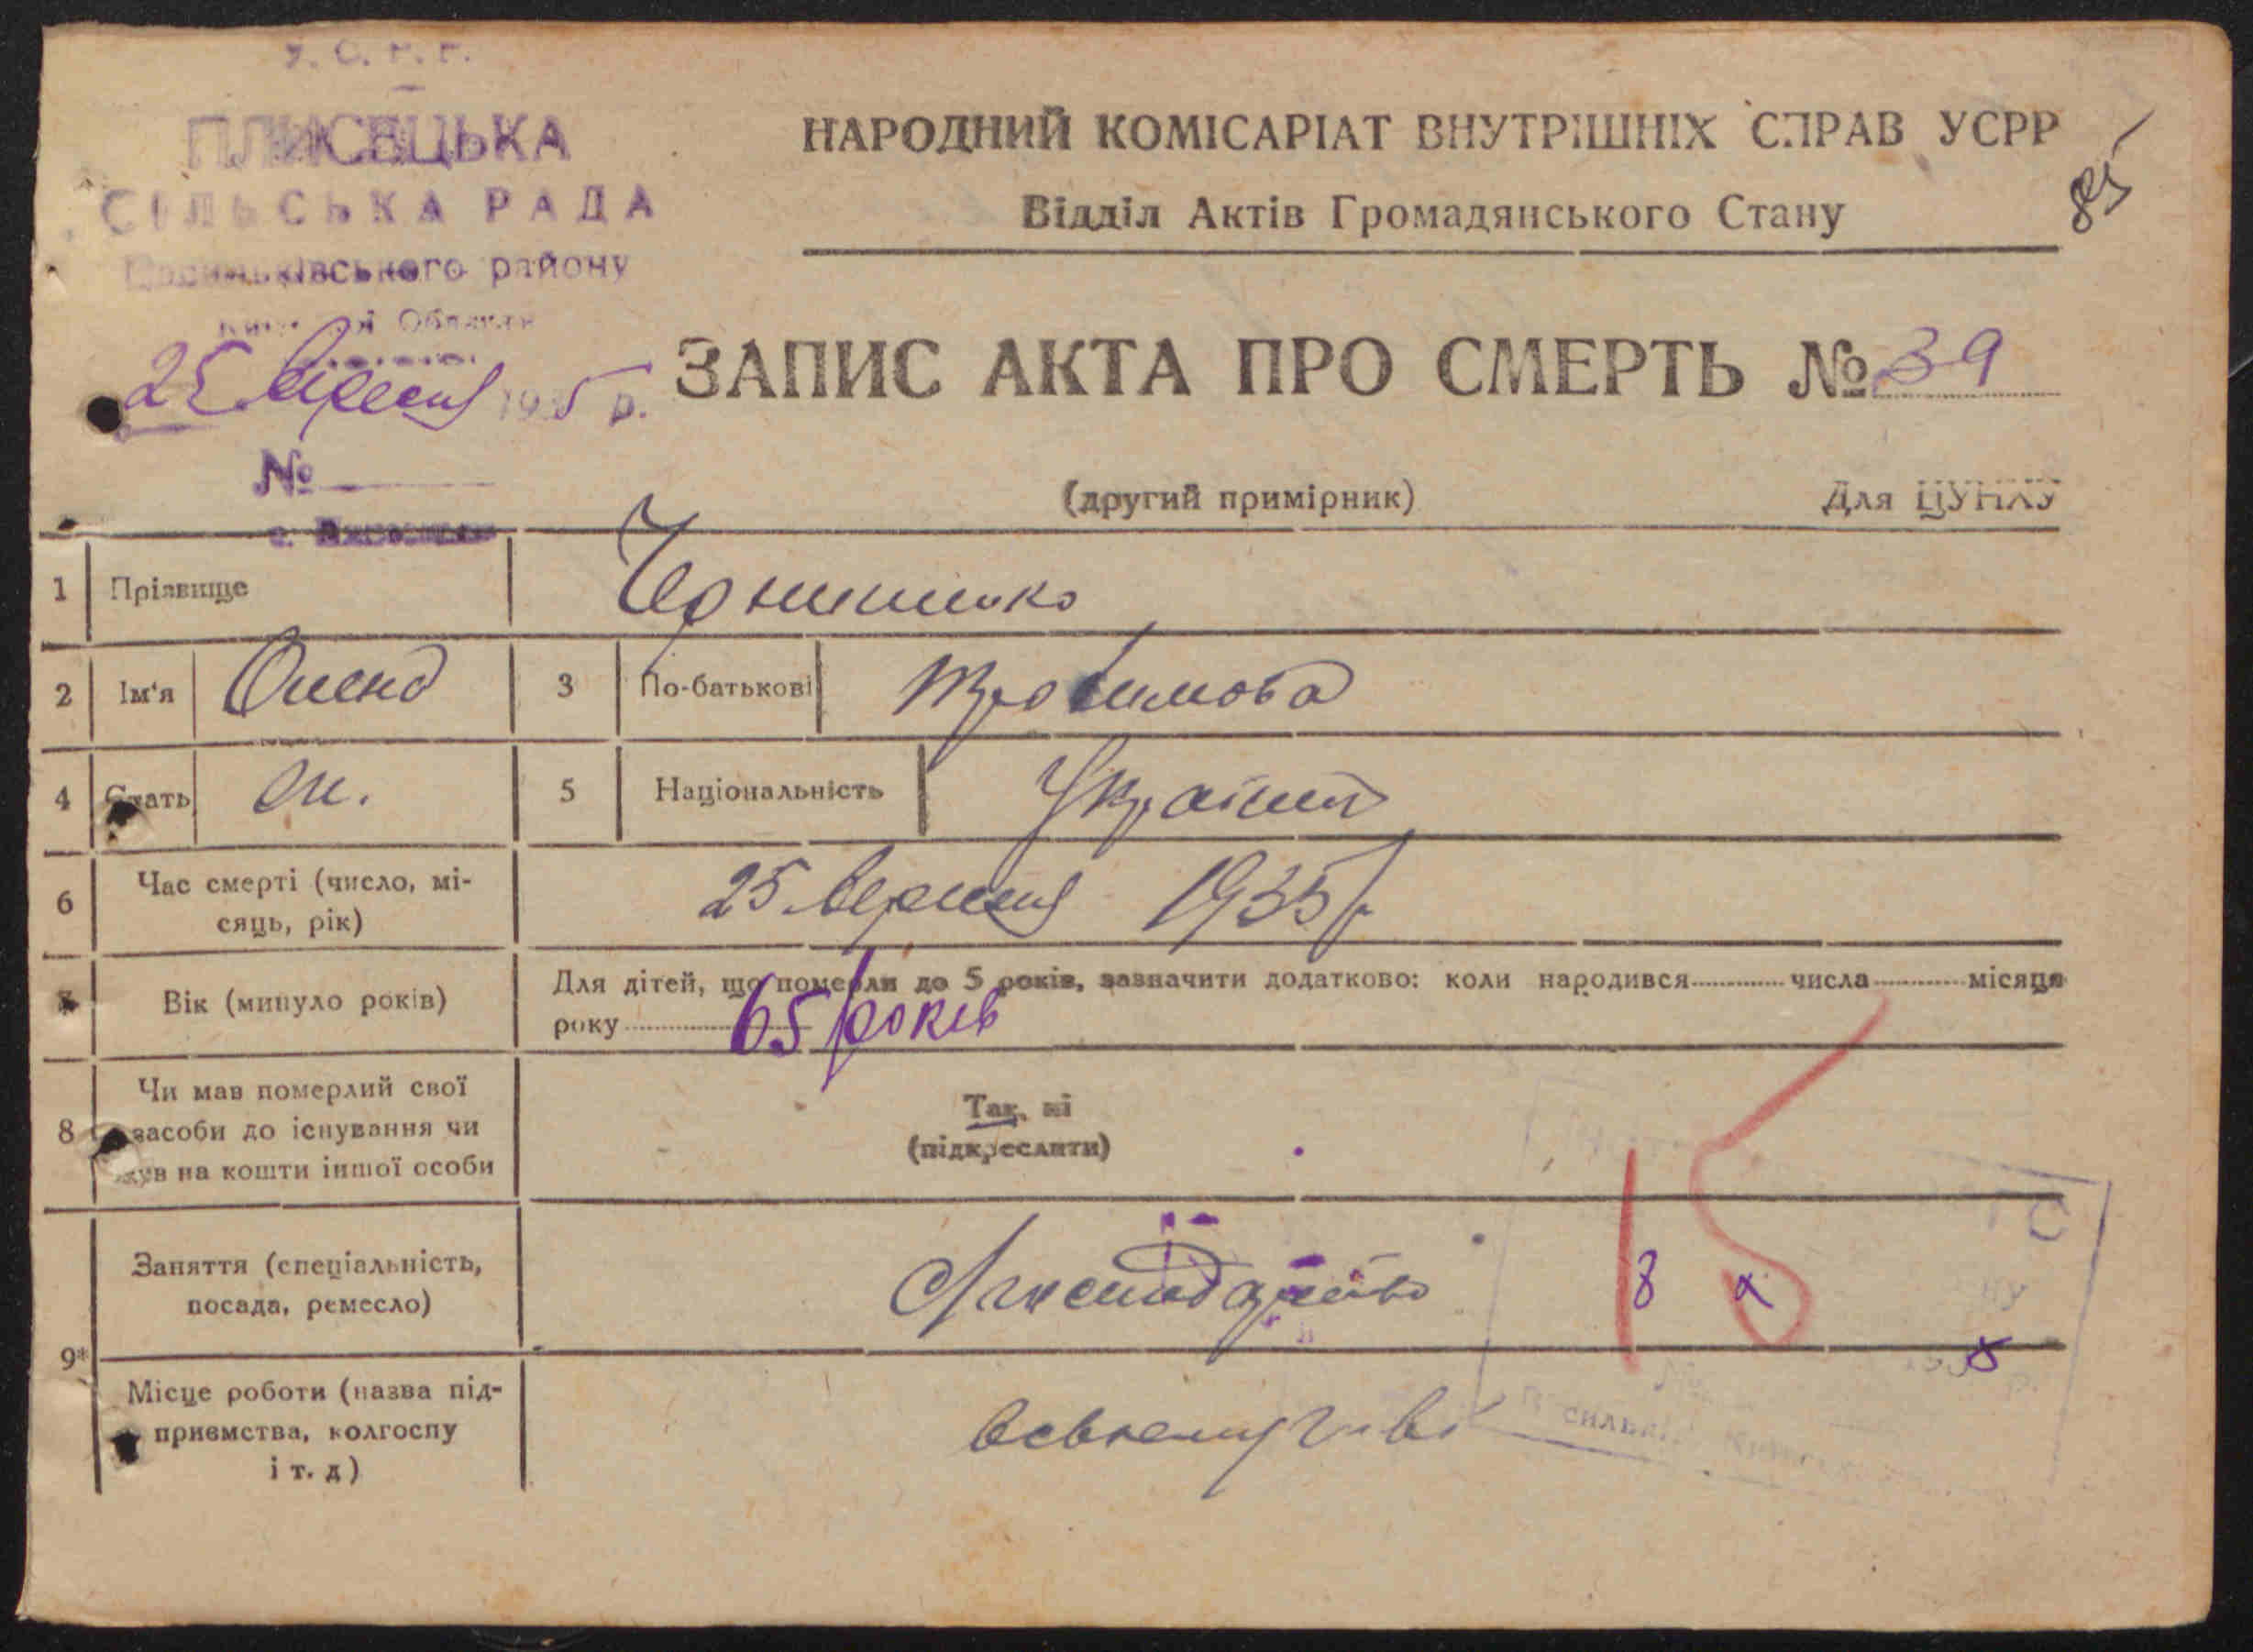 У. С. Р. Р.
ПЛИСЕЦЬКА
СІЛЬСЬКА РАДА
Васильківського району
Київської Області
25 вересня 1935 р.
№
НАРОДНИЙ КОМІСАРІАТ ВНУТРІШНІХ СПРАВ УСРР
Відділ Актів Громадянського Стану
85
ЗАПИС АКТА ПРО СМЕРТЬ № 39
(другий примірник)
Для ЦУНХУ
1 Прізвище
2 Ім'я Олена 3 По-батькові Трохимова
4 Стать ж. 5 Національність Україн
6 Час смерті (число, мі-
сяць, рік) 25 вересня 1935 р
7 Вік (минуло років)
Для дітей, що померли до 5 років, зазначити додатково: коли народився числа місяця
року 65 років
8 Чи мав померлий свої
засоби до існування чи
жив на кошти іншої особи
Так, ні
(підкреслити)
9* Заняття (спеціальність,
посада, ремесло)
8 х
Місце роботи (назва під-
приємства, колгоспу
і т. д)